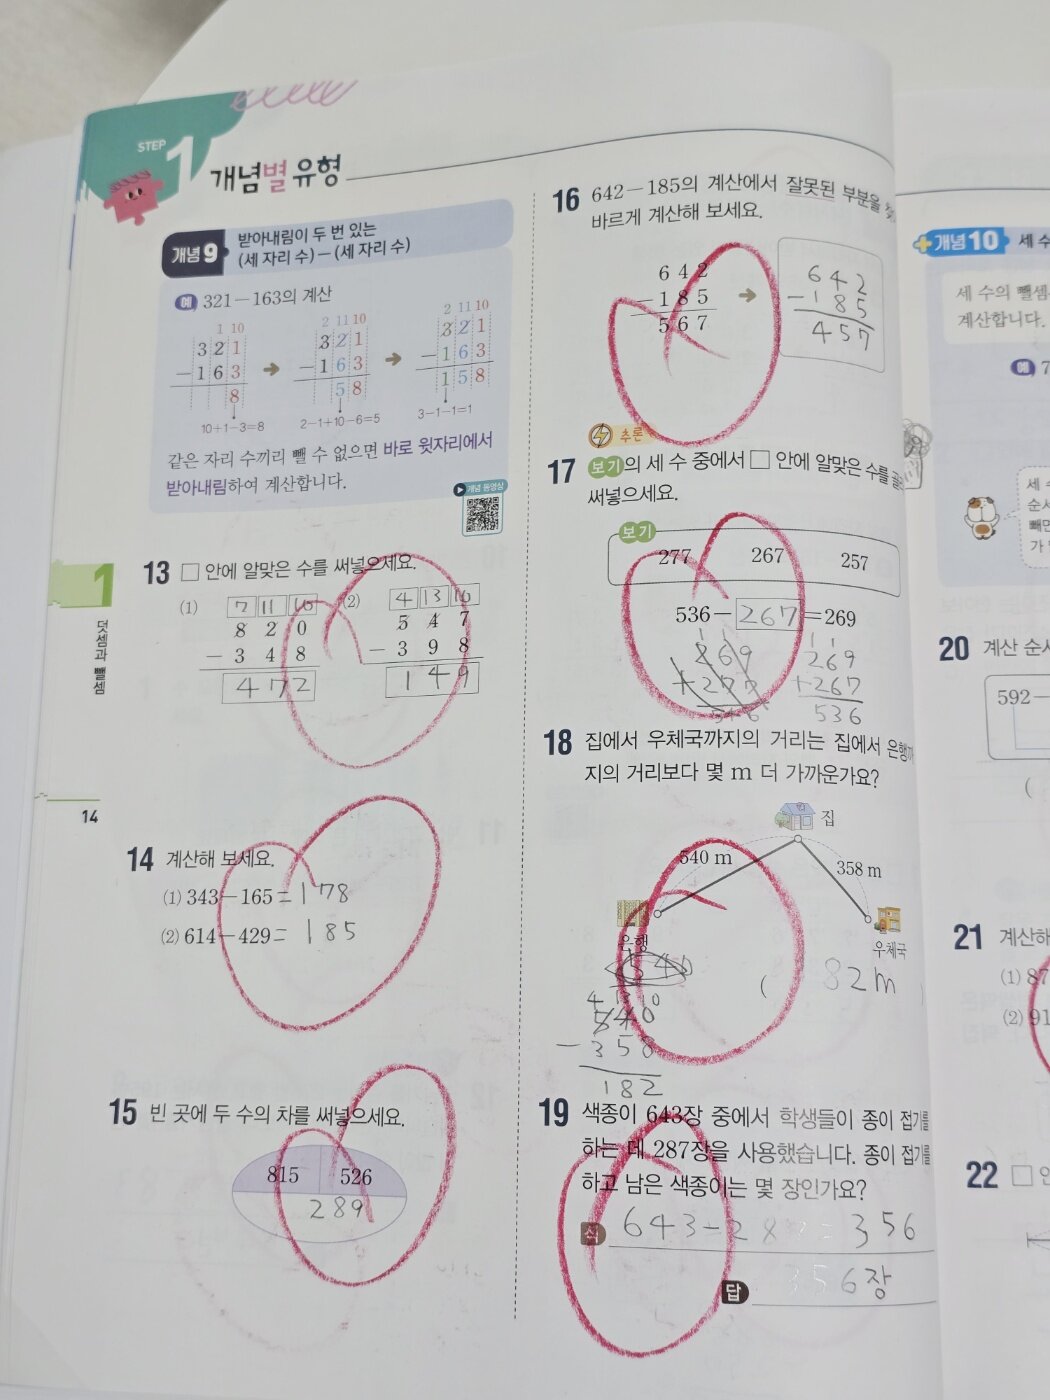 STEP 1
개념별 유형
개념 9 받아내림이 두 번 있는
(세 자리 수)－(세 자리 수)
예 321－163의 계산
1 10
3 2 1
－1 6 3
8
10+1－3=8
2 11 10
3 2 1
－1 6 3
5 8
2－1+10－6=5
2 11 10
3 2 1
－1 6 3
1 5 8
3－1－1=1
같은 자리 수끼리 뺄 수 없으면 바로 윗자리에서
받아내림하여 계산합니다.
개념 동영상
1
덧셈과 뺄셈
14
13 □ 안에 알맞은 수를 써넣으세요.
(1) 7 11 10
8 2 0
－ 3 4 8
4 7 2
(2) 4 13 10
5 4 7
－ 3 9 8
1 4 9
14 계산해 보세요.
(1) 343－165 = 178
(2) 614－429 = 185
15 빈 곳에 두 수의 차를 써넣으세요.
815 526
289
16 642－185의 계산에서 잘못된 부분을
바르게 계산해 보세요.
6 4 2
－1 8 5
5 6 7
642
－185
457
추론
17 보기의 세 수 중에서 □ 안에 알맞은 수를
써넣으세요.
보기
277 267 257
536－267=269
1 1
269
+277
546
1 1
269
+267
536
18 집에서 우체국까지의 거리는 집에서 은행
지의 거리보다 몇 m 더 가까운가요?
집
540 m
358 m
은행
우체국
540
4 13 10
540
－358
182
( 82m
19 색종이 643장 중에서 학생들이 종이 접기를
하는 데 287장을 사용했습니다. 종이 접기를
하고 남은 색종이는 몇 장인가요?
식 643－287=356
답 356장
개념 10 세 수
세 수의 뺄셈
계산합니다.
예 7
세 수
순서
빼면
가
20 계산 순서
592－
(
21 계산해
(1) 87
(2) 91
22 □